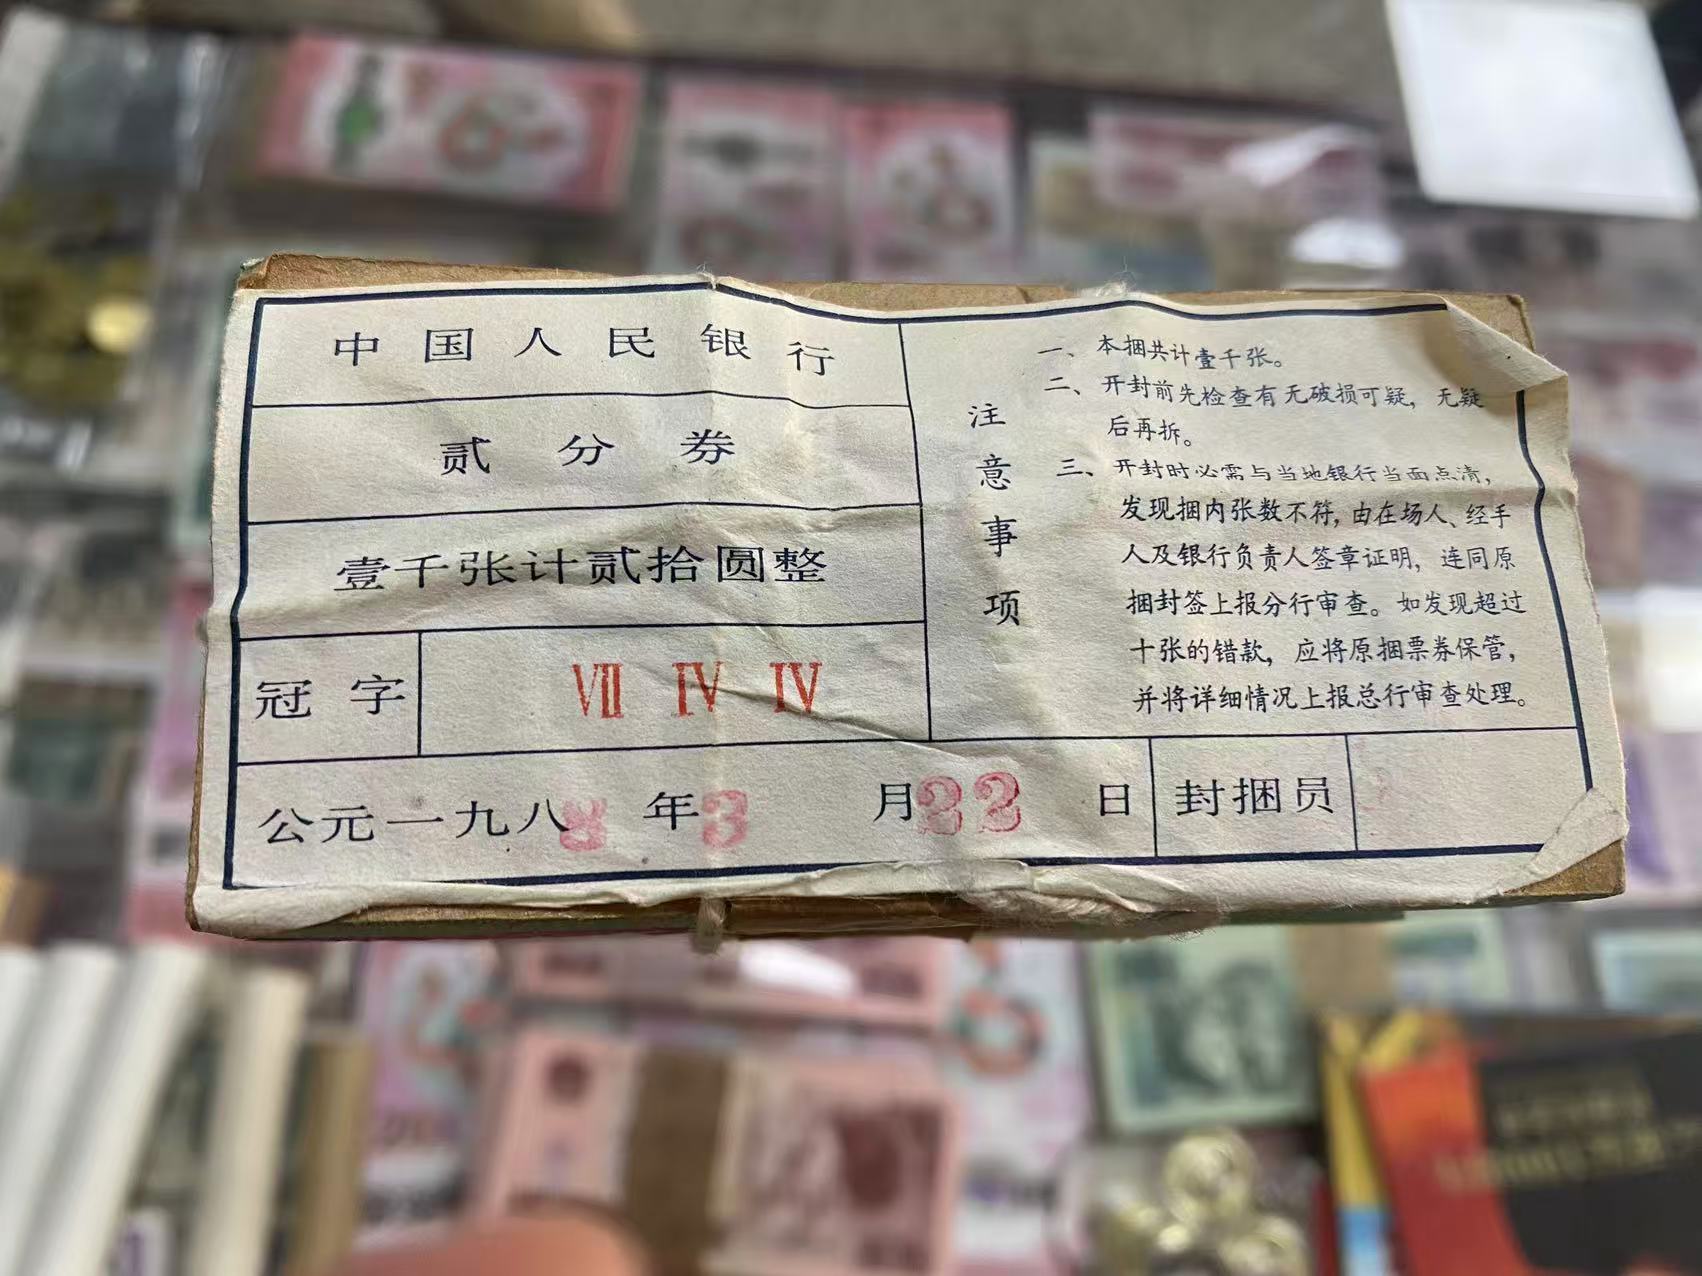 中国人民银行
贰分券
壹千张计贰拾圆整
冠字 VII IV IV
公元一九八8年3月22日 封捆员
注意事项
一、本捆共计壹千张。
二、开封前先检查有无破损可疑，无疑
后再拆。
三、开封时必需与当地银行当面点清，
发现捆内张数不符，由在场人、经手
人及银行负责人签章证明，连同原
捆封签上报分行审查。如发现超过
十张的错款，应将原捆票券保管，
并将详细情况上报总行审查处理。